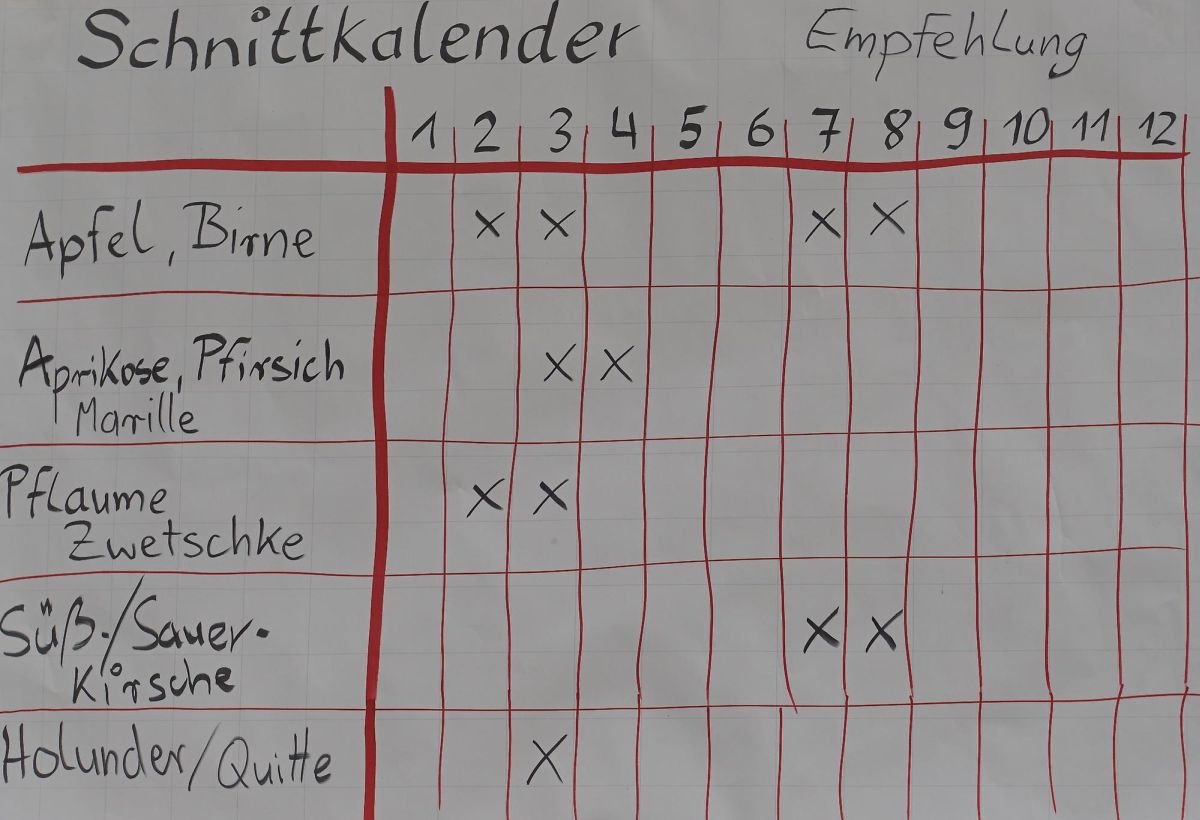 Schnittkalender Empfehlung
1 2 3 4 5 6 7 8 9 10 11 12
Apfel, Birne X X X X
Aprikose, Pfirsich X X
Marille
Pflaume X X
Zwetschke
Süß-/Sauer- X X
Kirsche
Holunder/Quitte X